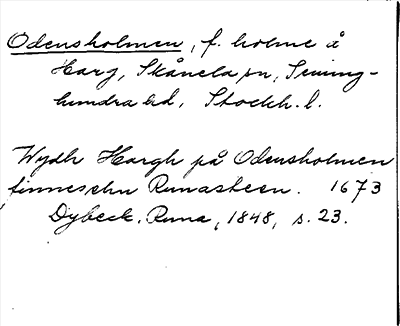 Odensholmen, f. holme å
Harg, Skånela sn, Seming-
hundra hd, Stockh. l.
Wydh Hargh på Odensholmen
finnes ehn Runasteen. 1673
Dybeck, Runa, 1848, s. 23.